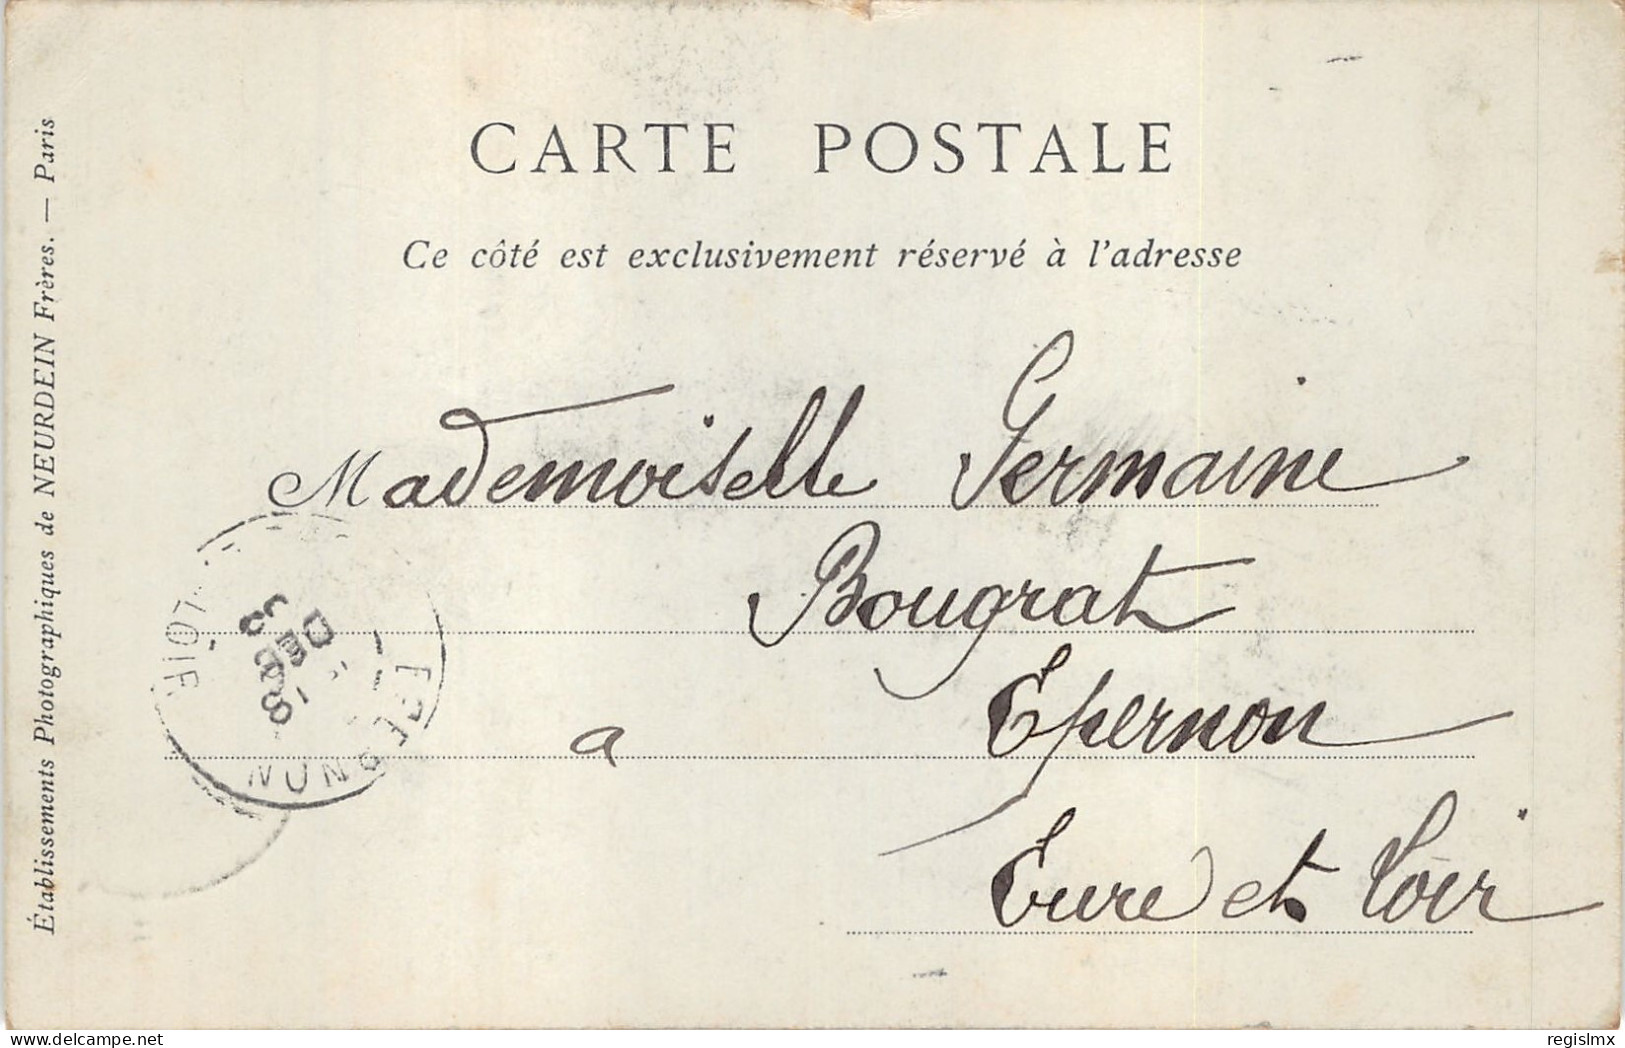 CARTE POSTALE
Ce côté est exclusivement réservé à l'adresse
Mademoiselle Germaine
Bougrat
a Epernon
Eure et Loir
Établissements Photographiques de NEURDEIN Frères. — Paris
DEC
LOIR
delcampe.net
regislmx